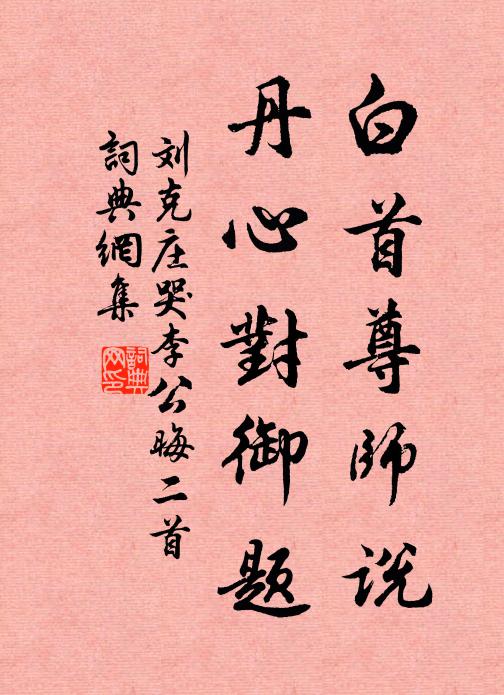 白首尊师说
丹心對御题
刘克庄哭李公晦二首
詞典網集
詞典网印